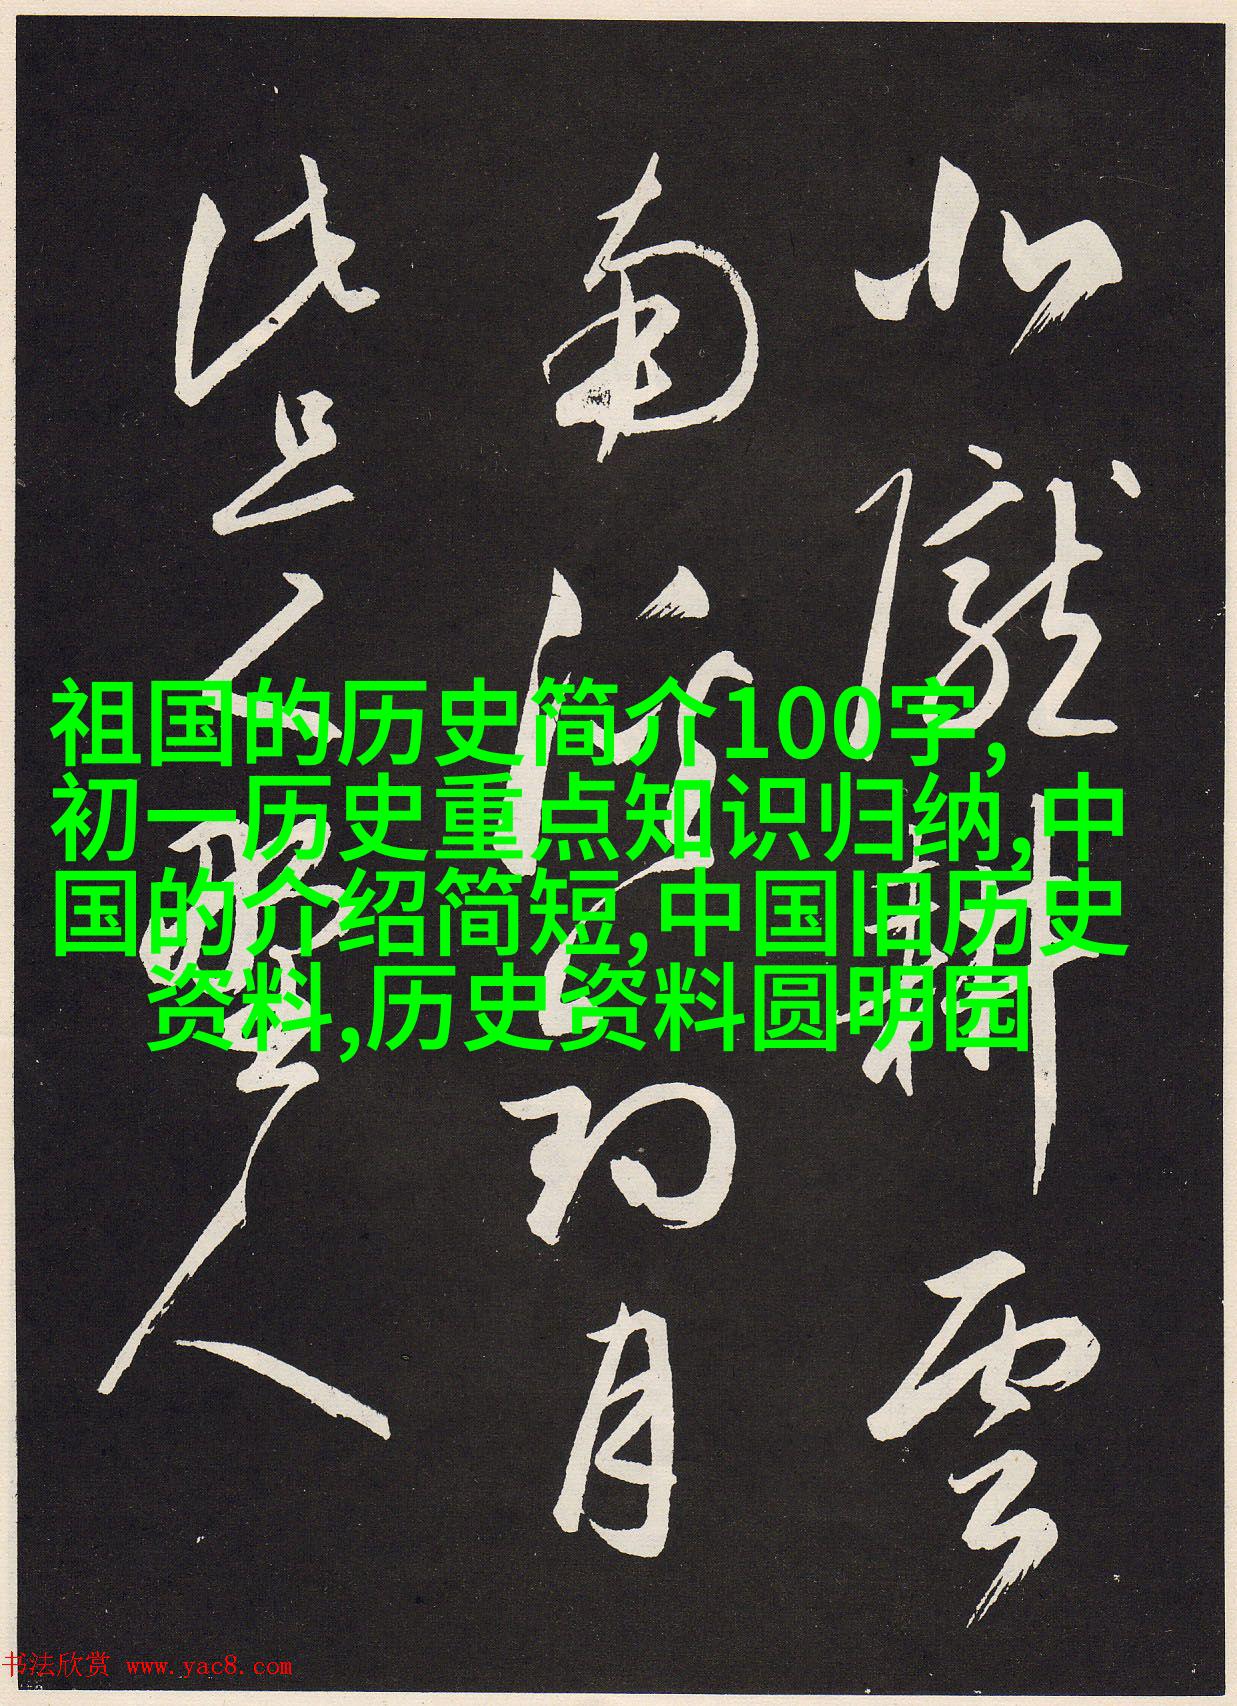 北隴耕雲
南溪釣月
此是野人
祖国的历史简介100字,
初一历史重点知识归纳,中
国的介绍简短,中国旧历史
资料,历史资料圆明园
书法欣赏 www.yac8.com